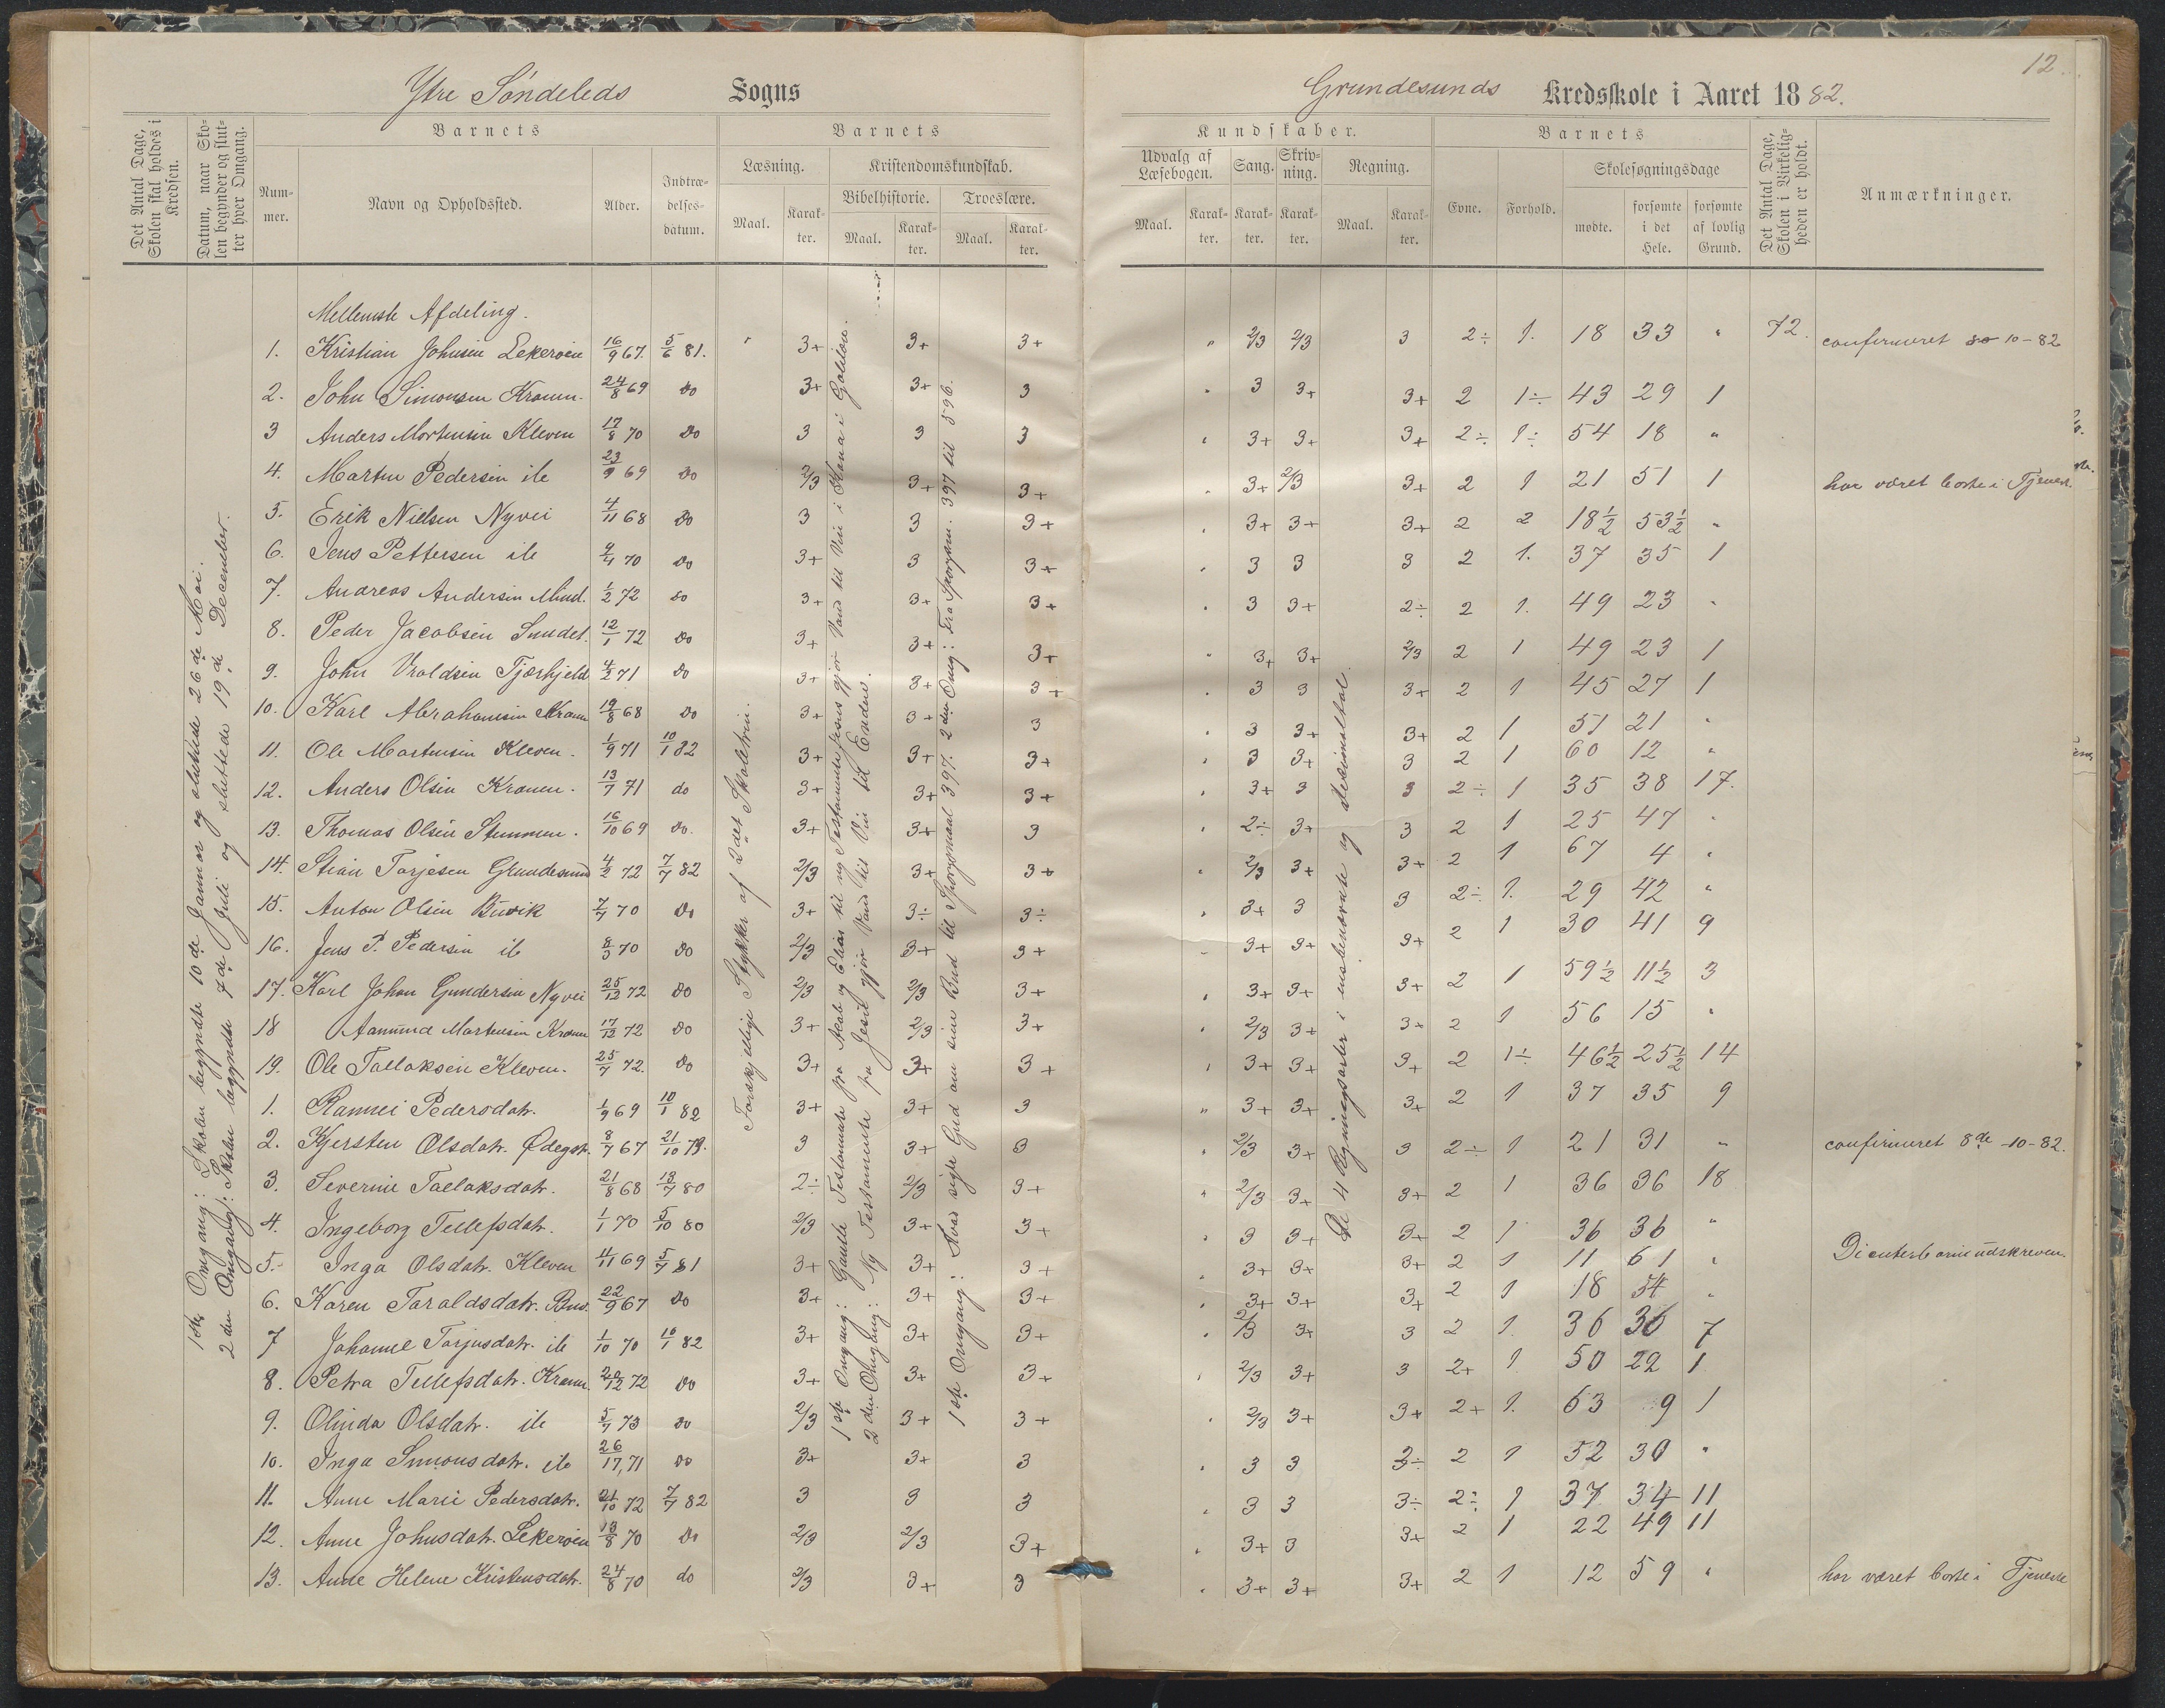 Ytre Söndeleds Sogns
Grundesunds Kredsskole i Aaret 1882.
12.
Det Antal Dage, Skolen skal holdes i Kredsen.
Datum, naar Skolen begynder og slutter hver Omgang.
Barnets
Nummer.
Navn og Opholdssted.
Alder.
Indtrædelsesdatum.
Barnets
Læsning.
Maal.
Karakter.
Kristendomskundskab.
Bibelhistorie.
Maal.
Karakter.
Troeslære.
Maal.
Karakter.
Kundskaber.
Udvalg af Læsebogen.
Maal.
Karakter.
Sang.
Karakter.
Skrivning.
Karakter.
Regning.
Maal.
Karakter.
Barnets
Evne.
Forhold.
Skolesøgningsdage
mødte.
forsømte i det Hele.
forsømte af lovlig Grund.
Det Antal Dage, Skolen i Virkeligheden er holdt.
Anmærkninger.
1ste Omgang: Skolen begyndte 10de Januar og sluttede 26de Mai.
2den Omgang: Skolen begyndte 7de Juli og sluttede 19de December.
Forskjellige Stykker af 2det Skoletrin.
2den Omg: Fra Spørgsm. 397 til 596.
De 4 Regningsarter i ensbenævnte og Decimaltal.
Mellemste Afdeling.
1. Kristian Johnsen Lekerøen 16/9 67. 5/6 81. " 3+ 3+ 3+ " 2/3 2/3 3 2÷ 1. 18 33 " 72. confirmeret 10-82
2. John Simonsen Kranen. 24/8 69 Do 3+ 3+ 3 " 3 3+ 3+ 2 1÷ 43 29 1
3 Anders Mortensen Kleven 17/8 70 Do 3 3 3 " 3+ 3+ 3+ 2÷ 1÷ 54 18 "
4. Martin Pedersen ib 23/9 69 Do 2/3 3+ 3+ " 3+ 2/3 3+ 2 1 21 51 1 har været borte i Tjenest.
5. Erik Nielsen Nyvei 4/11 68 Do 3 3 3+ " 3+ 3+ 3+ 2 2 18½ 53½ "
6. Jens Pettersen ib 9/4 70 Do 3+ 3 3+ " 3 3 3 2 1. 37 35 1
7. Andreas Andersen Mind. 1/2 72 Do 3+ 3+ 3+ " 3 3+ 2÷ 2 1. 49 23 "
8. Peder Jacobsen Sundet. 12/1 72 Do 3+ 3+ 3+ " 3+ 3+ 2/3 2 1 49 23 1
9. John Vraldsen Tjærhjeld 4/2 71 Do 3+ 3+ 3+ " 3 3 3+ 2 1 45 27 1
10. Karl Abrahamsen Kranen 19/8 68 Do 3+ 3+ 3 " 3 3+ 3+ 2 1 51 21 "
11. Ole Mortensen Kleven. 1/9 71 10/1 82 3+ 3+ 3+ " 3 3+ 3 2 1 60 12 "
12. Anders Olsen Kranen. 13/7 71 do 3+ 3+ 3+ " 3+ 3 3 2÷ 1 35 38 17.
13. Thomas Olsen Stemmen. 16/10 69 do. 3+ 3+ 3 " 2÷ 3+ 3 2 1 25 47 "
14. Stian Torjesen Glundesund 4/2 72 7/7 82 2/3 3+ 3+ " 2/3 3+ 3+ 2 1 67 4 "
15. Anton Olsen Buvik 7/7 70 Do 3+ 3÷ 3÷ " 3+ 3 3 2÷ 1. 29 42 "
16. Jens P. Pedersen ib 8/3 70 Do 2/3 3+ 3+ " 3+ 3+ 3+ 2 1 30 41 9
17. Karl Johan Gundersen Nyvei 25/12 72 Do 2/3 2/3 3+ " 3+ 3+ 3+ 2 1 59½ 11½ 3
18 Aanund Mortensen Kranen 17/12 72 Do 3+ 2/3 3+ " 2/3 3+ 3+ 2 1 56 15 "
19. Ole Tallaksen Kleven. 25/7 72. Do 3+ 3+ 3+ " 3+ 3+ 3+ 2 1÷ 46½ 25½ 14
1. Ramei Pedersdatr. 1/9 69 10/1 82 3+ 3+ 3 " 3+ 3+ 3+ 2 1 37 35 9
2. Kjersten Olsdatr. Ødegrd. 8/7 67 21/10 79. 3 3+ 3 " 2/3 3+ 3 2÷ 1 21 31 " confirmeret 8de-10-82.
3. Severine Tallaksdatr. 21/8 68 13/7 80 2÷ 2/3 3+ " 2/3 3+ 3+ 2 1 36 36 18
4. Ingeborg Tellefsdatr. 1/1 70 5/10 80 2/3 3+ 3+ 3 3+ 3+ 2 1 36 36 "
5. Inga Olsdatr. Kleven 4/11 69 5/7 81 3+ 3+ 3+ " 3+ 3+ 3+ 2 1 11 61 "
6. Karen Taraldsdatr. Buv. 22/9 67 Do 3+ 3+ 3+ " 3+ 3+ 3+ 2 1 18 54 "
7 Johanne Torjusdatr. ib 1/10 70 10/1 82 3+ 3+ 3+ " 2/3 3+ 3 2 1. 36 36 7
8. Petra Tellefsdatr. Kranen. 20/12 72 Do 3+ 3+ 3+ " 2/3 3+ 3 2+ 1. 50 22 1
9. Olinda Olsdatr. ib 5/7 73 Do 2/3 3+ 3+ " 2/3 3+ 3+ 2+ 1. 63 9 1
10. Inga Simonsdatr. ib 26/17, 71 Do 3+ 3+ 3 " 3 3 3÷ 2 1 52 30 "
11. Anne Marie Pedersdatr. 21/10 72 7/7 82 3 3 3 " 3 3 3÷ 2÷ 1 37 34 11
12. Anne Johnsdatr. Lekerøen 13/8 70 Do 2/3 2/3 3+ " 3+ 3 3+ 2 1 22 49 11
13. Anne Helene Kristensdatr. 24/8 70 do 2/3 3+ 3 " 3+ 3+ 3+ 2 1 12 59 " har været borte i Tjeneste